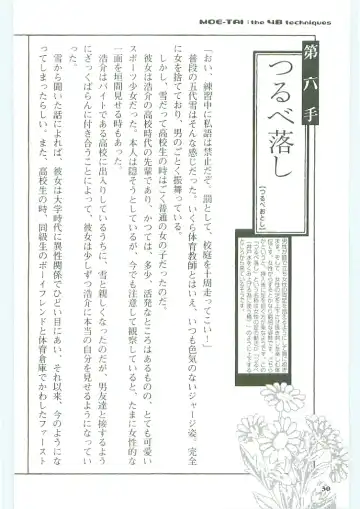 MOE-TAI : the 48 techniques
第六手
つるべ落し
【つるべおとし】
「おい、練習中に私語は禁止だぞ。罰として、校庭を十周走ってこい!」
普段の五代雪はそんな感じだった。いくら体育教師とはいえ、いつも色気のないジャージ姿。完全
に女を捨てており、男のごとく振舞っている。
しかし、雪だって高校生の時はごく普通の女の子だったのだ。
彼女は浩介の高校時代の先輩であり、かつては、多少、活発なところはあるものの、とても可愛い
スポーツ少女だった。本人は隠そうとしているが、今でも注意して観察していると、たまに女性的な
一面を垣間見せる時もあった。
浩介はバイトである高校に出入りしているうちに、雪と親しくなったのだが、男友達と接するよう
にざっくばらんに付き合うことによって、彼女は少しずつ浩介に本当の自分を見せるようになってい
った。
雪から聞いた話によれば、彼女は大学時代に異性関係でひどい目にあい、それ以来、今のようにな
ってしまったらしい。また、高校生の時、同級生のボーイフレンドと体育倉庫でかわしたファースト
50